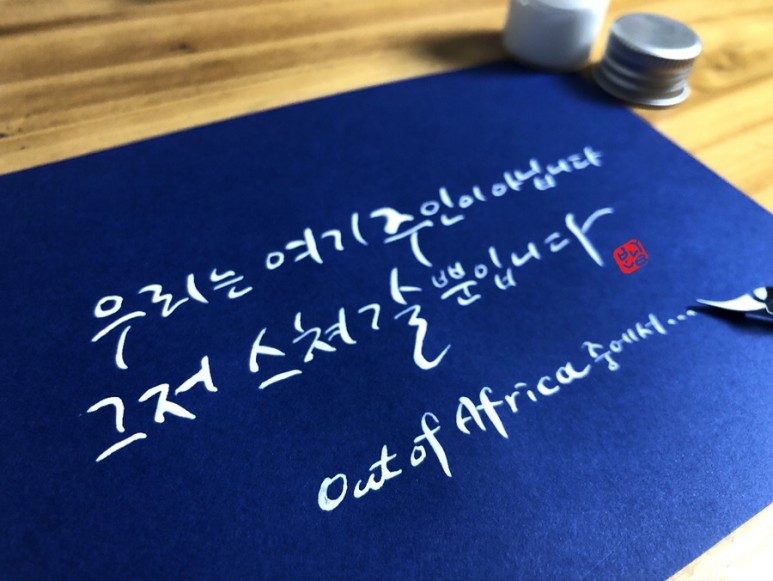 우리는 여기 주인이 아닙니다
그저 스쳐갈 뿐입니다
Out of Africa 중에서...